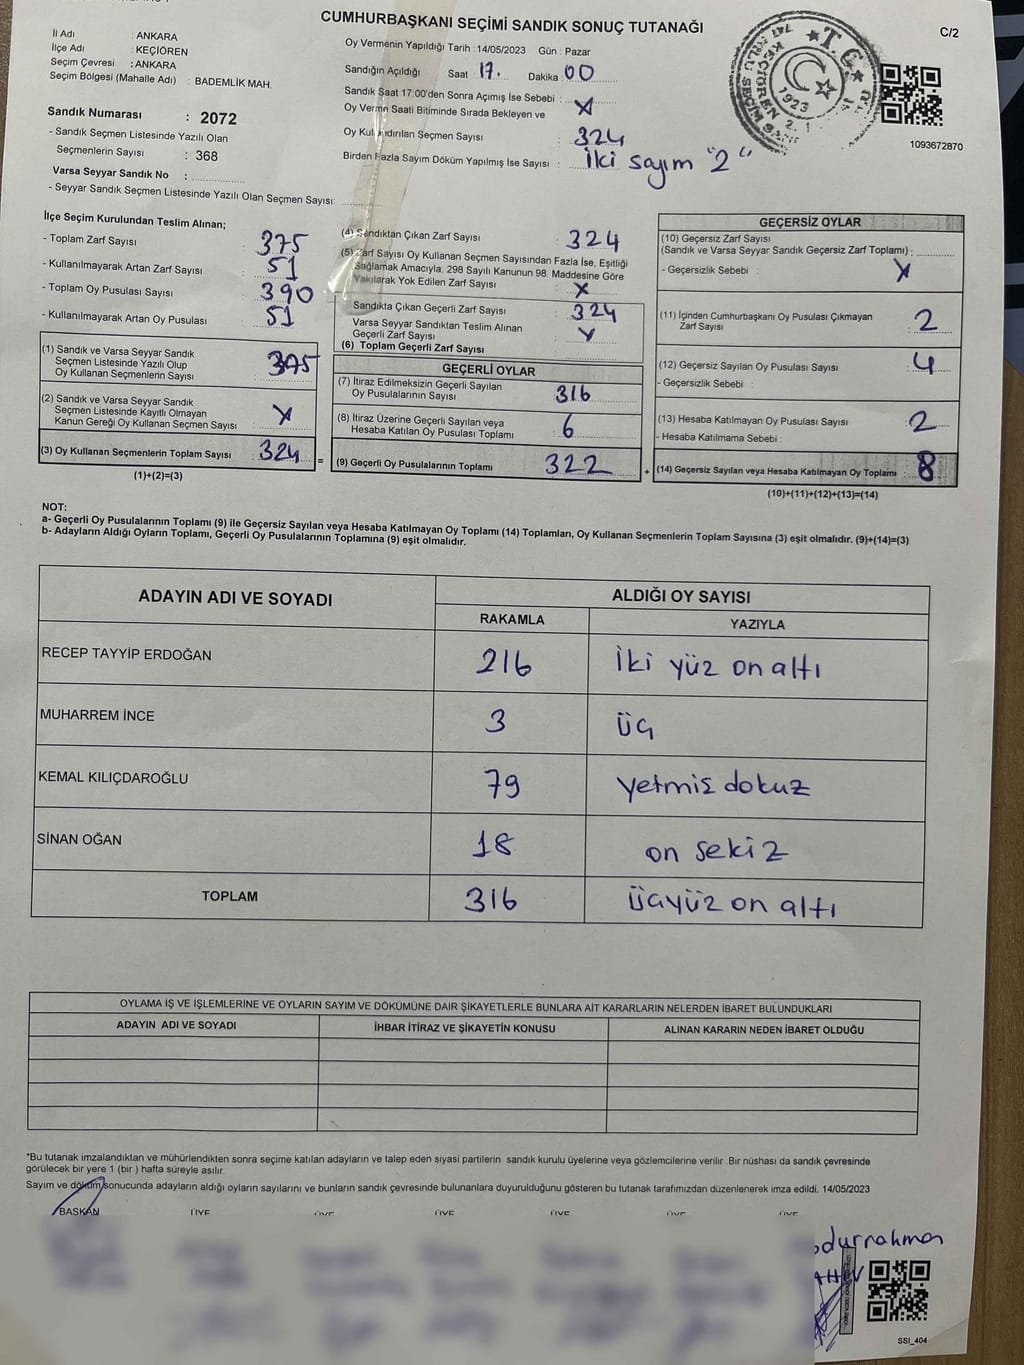 CUMHURBAŞKANI SEÇİMİ SANDIK SONUÇ TUTANAĞI
C/2
İl Adı : ANKARA
İlçe Adı : KEÇİÖREN
Seçim Çevresi : ANKARA
Seçim Bölgesi (Mahalle Adı) : BADEMLİK MAH.
Sandık Numarası : 2072
- Sandık Seçmen Listesinde Yazılı Olan
Seçmenlerin Sayısı : 368
Varsa Seyyar Sandık No :
- Seyyar Sandık Seçmen Listesinde Yazılı Olan Seçmen Sayısı:
Oy Vermenin Yapıldığı Tarih : 14/05/2023 Gün : Pazar
Sandığın Açıldığı Saat : 17. Dakika 00
Sandık Saat 17:00'den Sonra Açımış İse Sebebi :
Oy Verme Saati Bitiminde Sırada Bekleyen ve X
Oy Kullandırılan Seçmen Sayısı : 324
Birden Fazla Sayım Döküm Yapılmış İse Sayısı : İki sayım "2"
T.C.
1923
1093672870
İlçe Seçim Kurulundan Teslim Alınan;
- Toplam Zarf Sayısı : 375
- Kullanılmayarak Artan Zarf Sayısı : 51
- Toplam Oy Pusulası Sayısı : 390
- Kullanılmayarak Artan Oy Pusulası : 51
(1) Sandık ve Varsa Seyyar Sandık
Seçmen Listesinde Yazılı Olup
Oy Kullanan Seçmenlerin Sayısı :
(2) Sandık ve Varsa Seyyar Sandık
Seçmen Listesinde Kayıtlı Olmayan
Kanun Gereği Oy Kullanan Seçmen Sayısı : X
(3) Oy Kullanan Seçmenlerin Toplam Sayısı : 324
(1)+(2)=(3)
=
(4) Sandıktan Çıkan Zarf Sayısı : 324
(5) Zarf Sayısı Oy Kullanan Seçmen Sayısından Fazla İse, Eşitliği
Sağlamak Amacıyla, 298 Sayılı Kanunun 98. Maddesine Göre
Yakılarak Yok Edilen Zarf Sayısı : X
Sandıkta Çıkan Geçerli Zarf Sayısı : 324
Varsa Seyyar Sandıktan Teslim Alınan
Geçerli Zarf Sayısı : X
(6) Toplam Geçerli Zarf Sayısı
GEÇERLİ OYLAR
(7) İtiraz Edilmeksizin Geçerli Sayılan
Oy Pusulalarının Sayısı : 316
(8) İtiraz Üzerine Geçerli Sayılan veya
Hesaba Katılan Oy Pusulası Toplamı : 6
(9) Geçerli Oy Pusulalarının Toplamı 322
+
GEÇERSİZ OYLAR
(10) Geçersiz Zarf Sayısı
(Sandık ve Varsa Seyyar Sandık Geçersiz Zarf Toplamı) :
- Geçersizlik Sebebi : X
(11) İçinden Cumhurbaşkanı Oy Pusulası Çıkmayan
Zarf Sayısı : 2
(12) Geçersiz Sayılan Oy Pusulası Sayısı : 4
- Geçersizlik Sebebi :
(13) Hesaba Katılmayan Oy Pusulası Sayısı : 2
- Hesaba Katılmama Sebebi :
(14) Geçersiz Sayılan veya Hesaba Katılmayan Oy Toplamı : 8
(10)+(11)+(12)+(13)=(14)
NOT:
a- Geçerli Oy Pusulalarının Toplamı (9) ile Geçersiz Sayılan veya Hesaba Katılmayan Oy Toplamı (14) Toplamları, Oy Kullanan Seçmenlerin Toplam Sayısına (3) eşit olmalıdır. (9)+(14)=(3)
b- Adayların Aldığı Oyların Toplamı, Geçerli Oy Pusulalarının Toplamına (9) eşit olmalıdır.
ADAYIN ADI VE SOYADI ALDIĞI OY SAYISI
RAKAMLA YAZIYLA
RECEP TAYYİP ERDOĞAN 216 İki yüz on altı
MUHARREM İNCE 3 üç
KEMAL KILIÇDAROĞLU 79 yetmiş dokuz
SİNAN OĞAN 18 on sekiz
TOPLAM 316 üçyüz on altı
OYLAMA İŞ VE İŞLEMLERİNE VE OYLARIN SAYIM VE DÖKÜMÜNE DAİR ŞİKAYETLERLE BUNLARA AİT KARARLARIN NELERDEN İBARET BULUNDUKLARI
ADAYIN ADI VE SOYADI İHBAR İTİRAZ VE ŞİKAYETİN KONUSU ALINAN KARARIN NEDEN İBARET OLDUĞU
*Bu tutanak imzalandıktan ve mühürlendikten sonra seçime katılan adayların ve talep eden siyasi partilerin sandık kurulu üyelerine veya gözlemcilerine verilir .Bir nüshası da sandık çevresinde
görülecek bir yere 1 (bir ) hafta süreyle asılır.
Sayım ve döküm sonucunda adayların aldığı oyların sayılarını ve bunların sandık çevresinde bulunanlara duyurulduğunu gösteren bu tutanak tarafımızdan düzenlenerek imza edildi. 14/05/2023
BAŞKAN ÜYE ÜYE ÜYE ÜYE ÜYE ÜYE
SSI_404